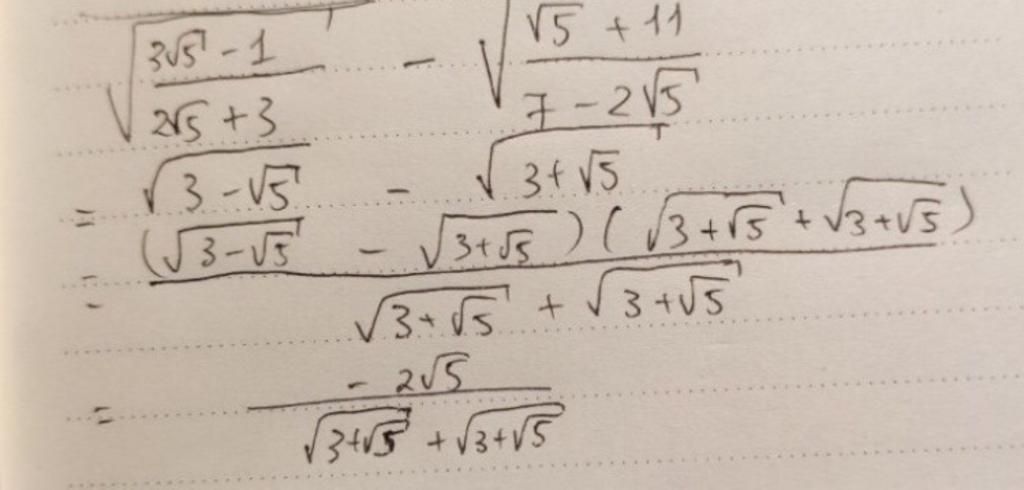 √((3√5 - 1)/(2√5 + 3)) - √((√5 + 11)/(7 - 2√5))
= √(3 - √5) - √(3 + √5)
= ((√(3 - √5) - √(3 + √5))(√(3 + √5) + √(3 + √5)))/(√(3 + √5) + √(3 + √5))
= (- 2√5)/(√(3 + √5) + √(3 + √5))